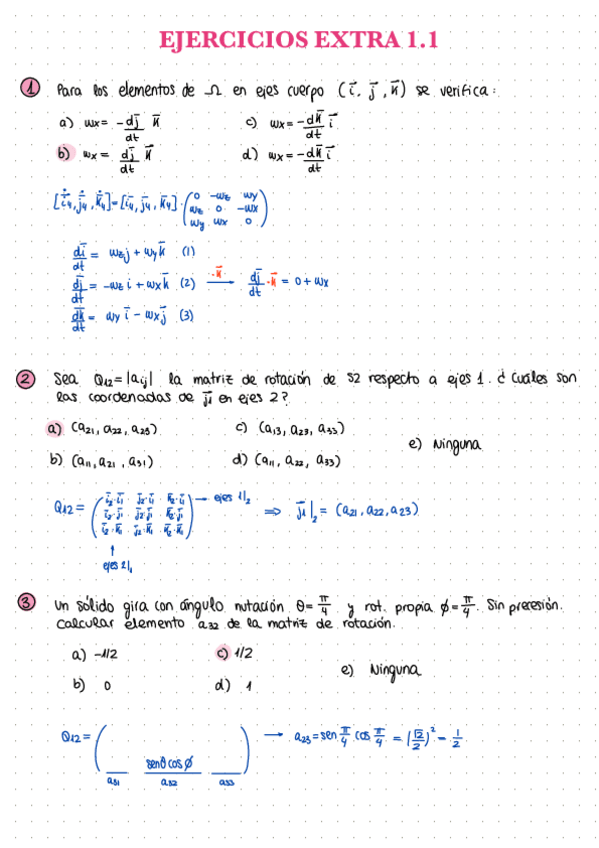 EJERCICIOS EXTRA 1.1
1 Para los elementos de Ω en ejes cuerpo (i⃗, j⃗, k⃗) se verifica:
a) ωx = -dj⃗/dt k⃗
c) ωx = -dk⃗/dt i⃗
b) ωx = dj⃗/dt k⃗
d) ωx = -dk⃗/dt i⃗
[i⃗̇4, j⃗̇4, k⃗̇4] = [i⃗4, j⃗4, k⃗4] · (0 -ωz ωy
ωz 0 -ωx
ωy ωx 0)
di⃗/dt = ωz j + ωy k⃗ (1)
dj⃗/dt = -ωz i + ωx k⃗ (2) ·k⃗ → dj⃗/dt · k⃗ = 0 + ωx
dk⃗/dt = ωy i⃗ - ωx j⃗ (3)
2 Sea Q12 = |aij| la matriz de rotación de S2 respecto a ejes 1. ¿Cuáles son
las coordenadas de j⃗1 en ejes 2?
a) (a21, a22, a23)
c) (a13, a23, a33)
e) Ninguna
b) (a11, a21, a31)
d) (a11, a22, a33)
Q12 = (i⃗2·i⃗1 j⃗2·i⃗1 k⃗2·i⃗1 → ejes 1/2
i⃗2·j⃗1 j⃗2·j⃗1 k⃗2·j⃗1 ⇒ j⃗1|2 = (a21, a22, a23)
i⃗2·k⃗1 j⃗2·k⃗1 k⃗2·k⃗1)
↑
ejes 2/1
3 Un sólido gira con ángulo nutación θ = π/4 y rot. propia ϕ = π/4. Sin precesión.
Calcular elemento a32 de la matriz de rotación.
a) -1/2
c) 1/2
e) Ninguna
b) 0
d) 1
Q12 = ( ) → a23 = sen π/4 cos π/4 = (√2/2)² = 1/2
senθ cosϕ
a31 a32 a33